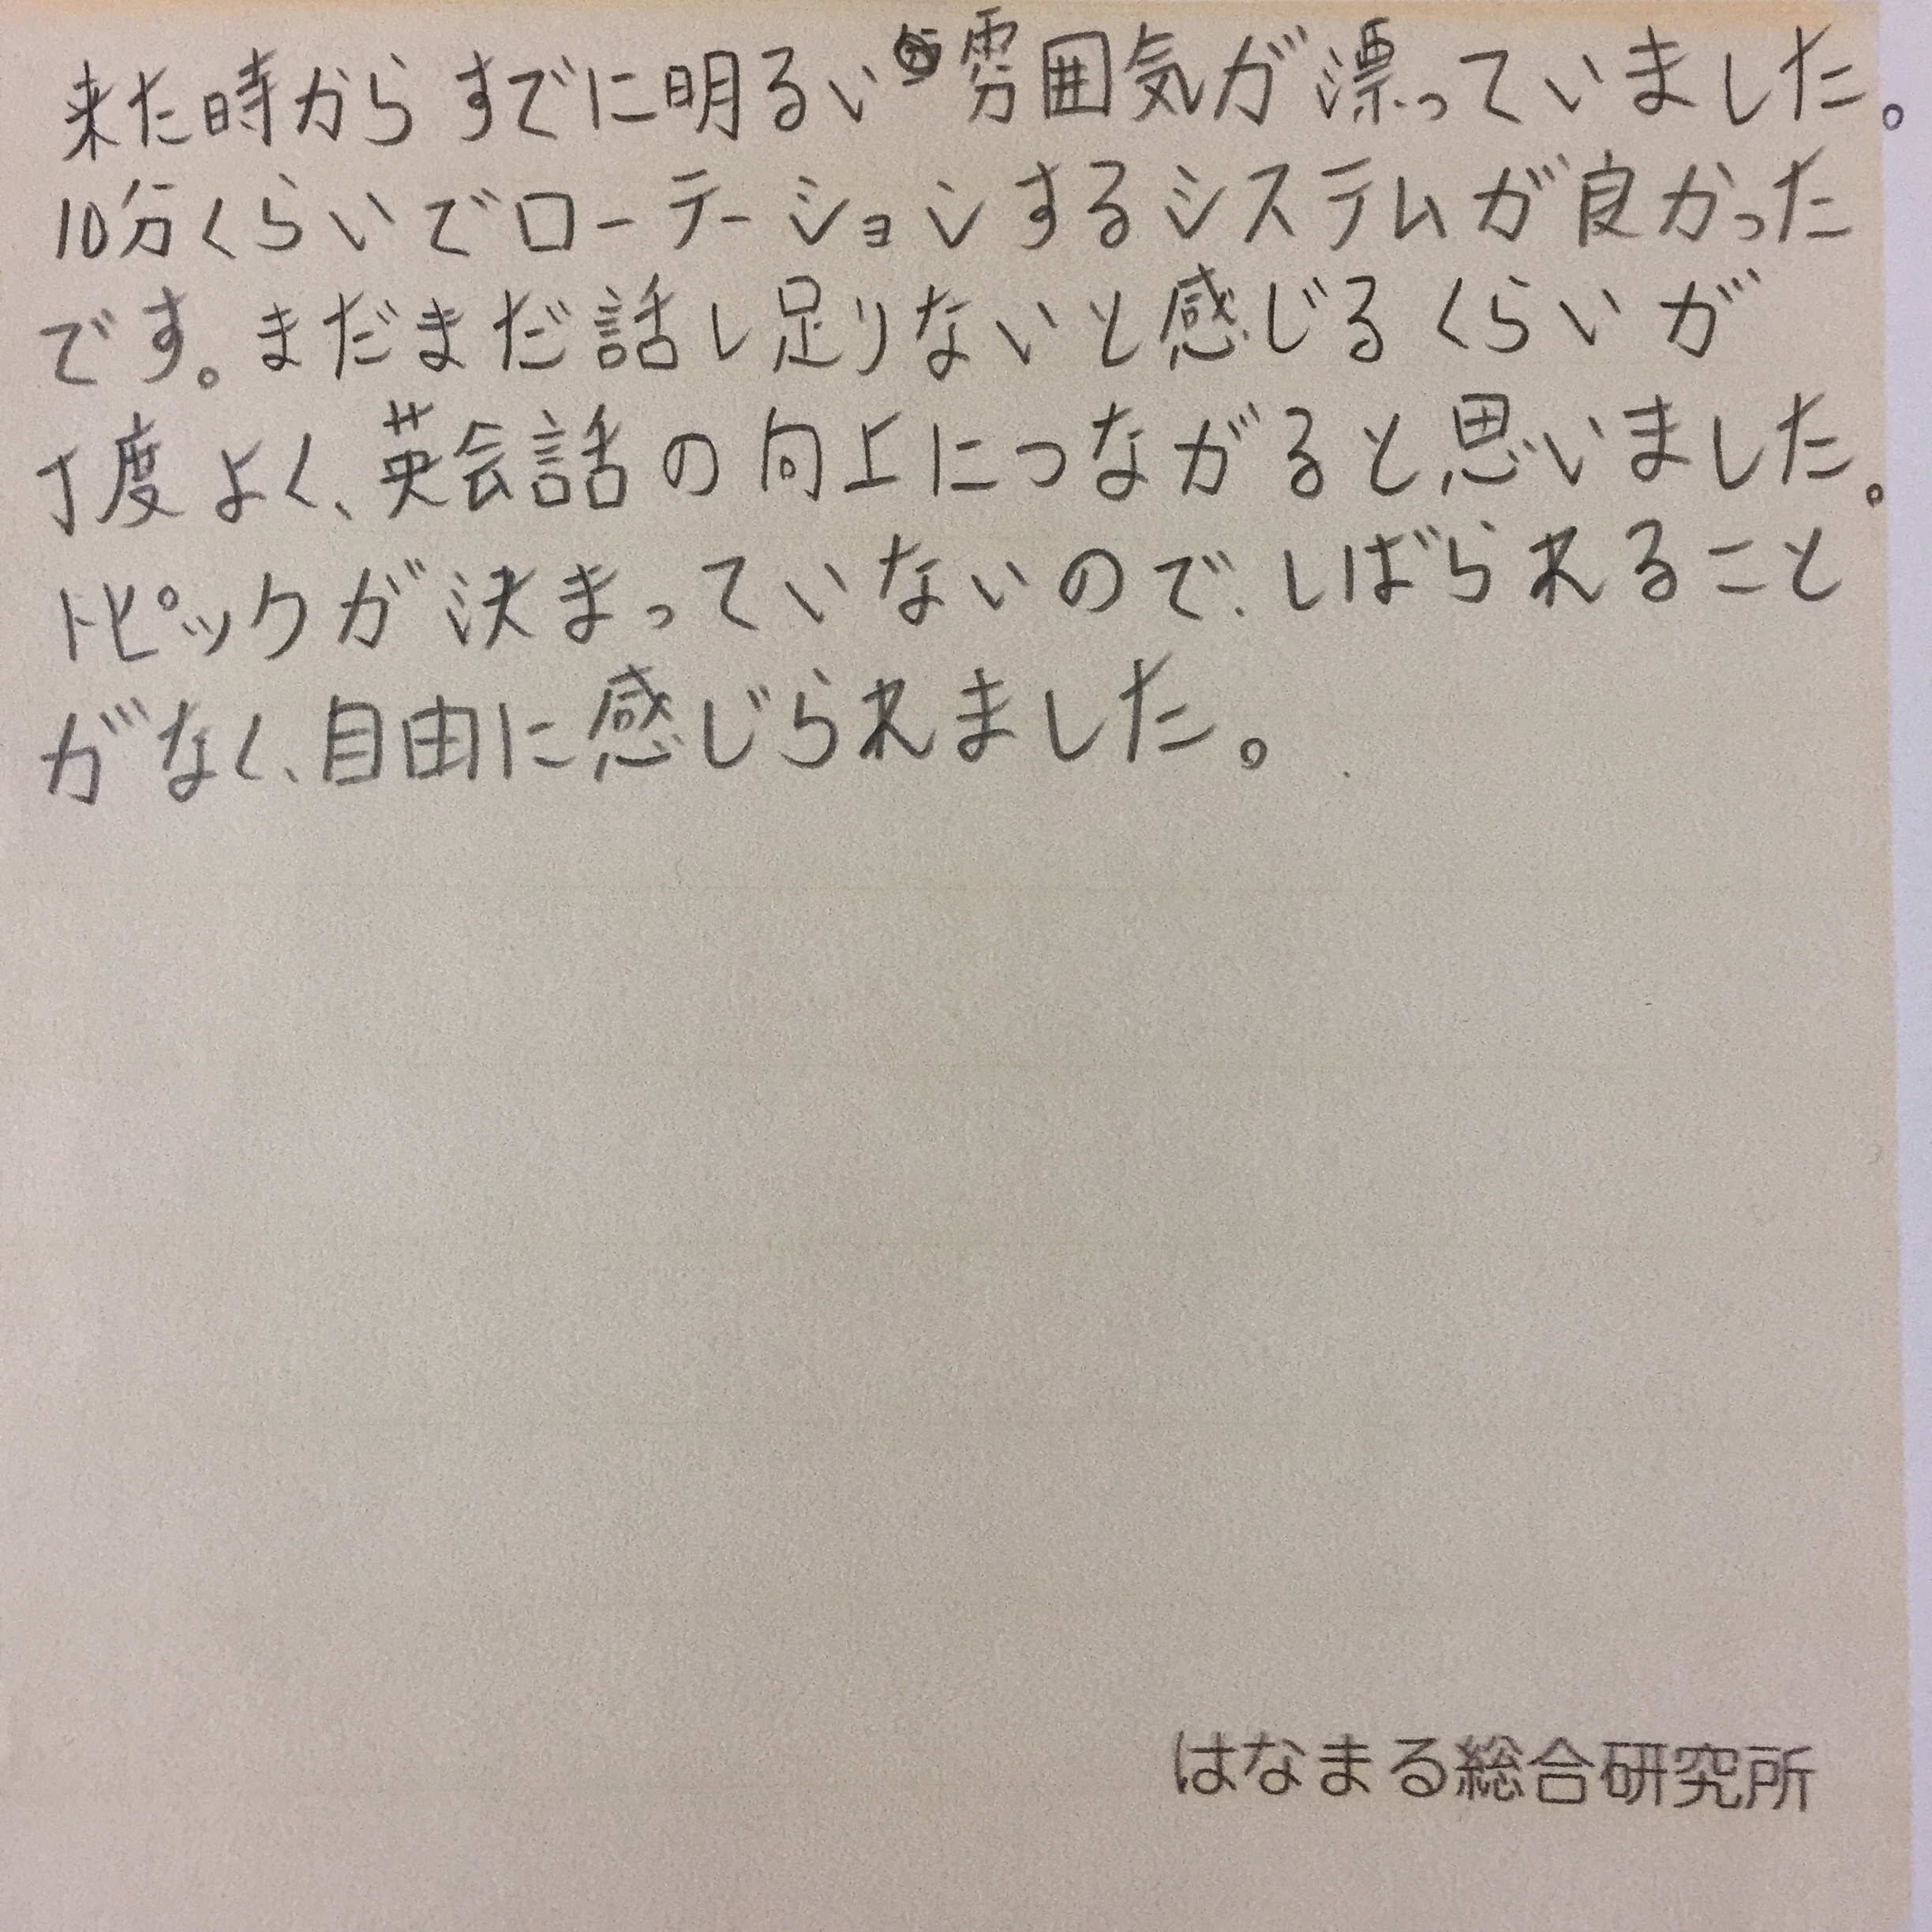 来た時からすでに明るい雰囲気が漂っていました。
10分くらいでローテーションするシステムが良かった
です。まだまだ話し足りないと感じるくらいが
丁度よく、英会話の向上につながると思いました。
トピックが決まっていないので、しばられること
がなく、自由に感じられました。
はなまる総合研究所